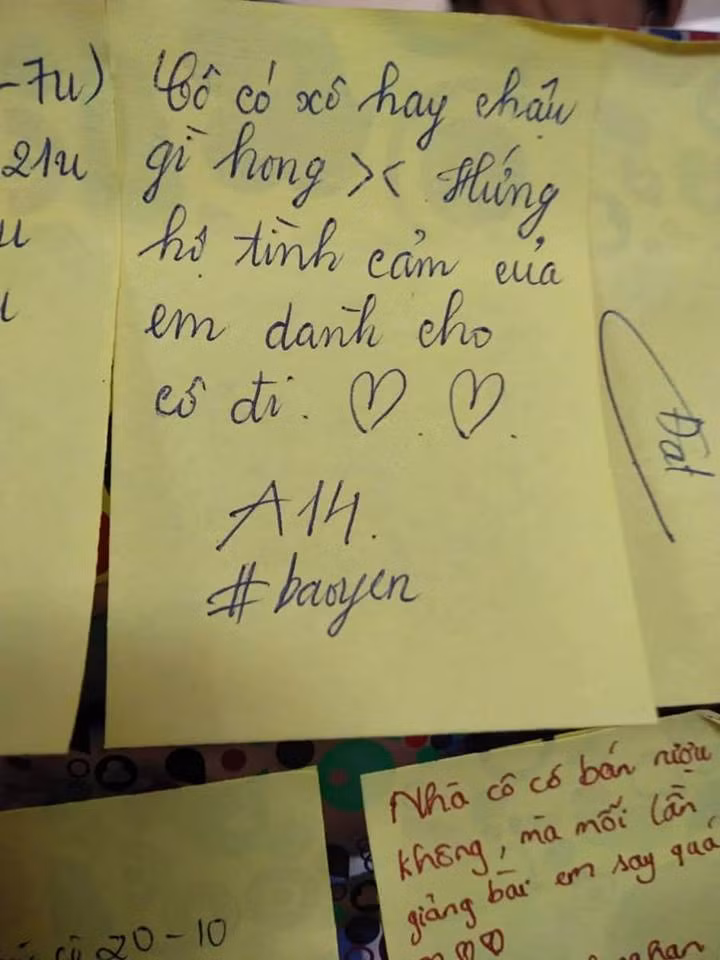 -7u)
21u
u
Cô có xô hay chậu
gì hong >< Hứng
hộ tình cảm của
em danh cho
cô đi. ♡. ♡.
A14.
#baoyen
Đạt
Nhà cô có bán rượu
không, mà mỗi lần
giảng bài em say quá
♡♡
20-10